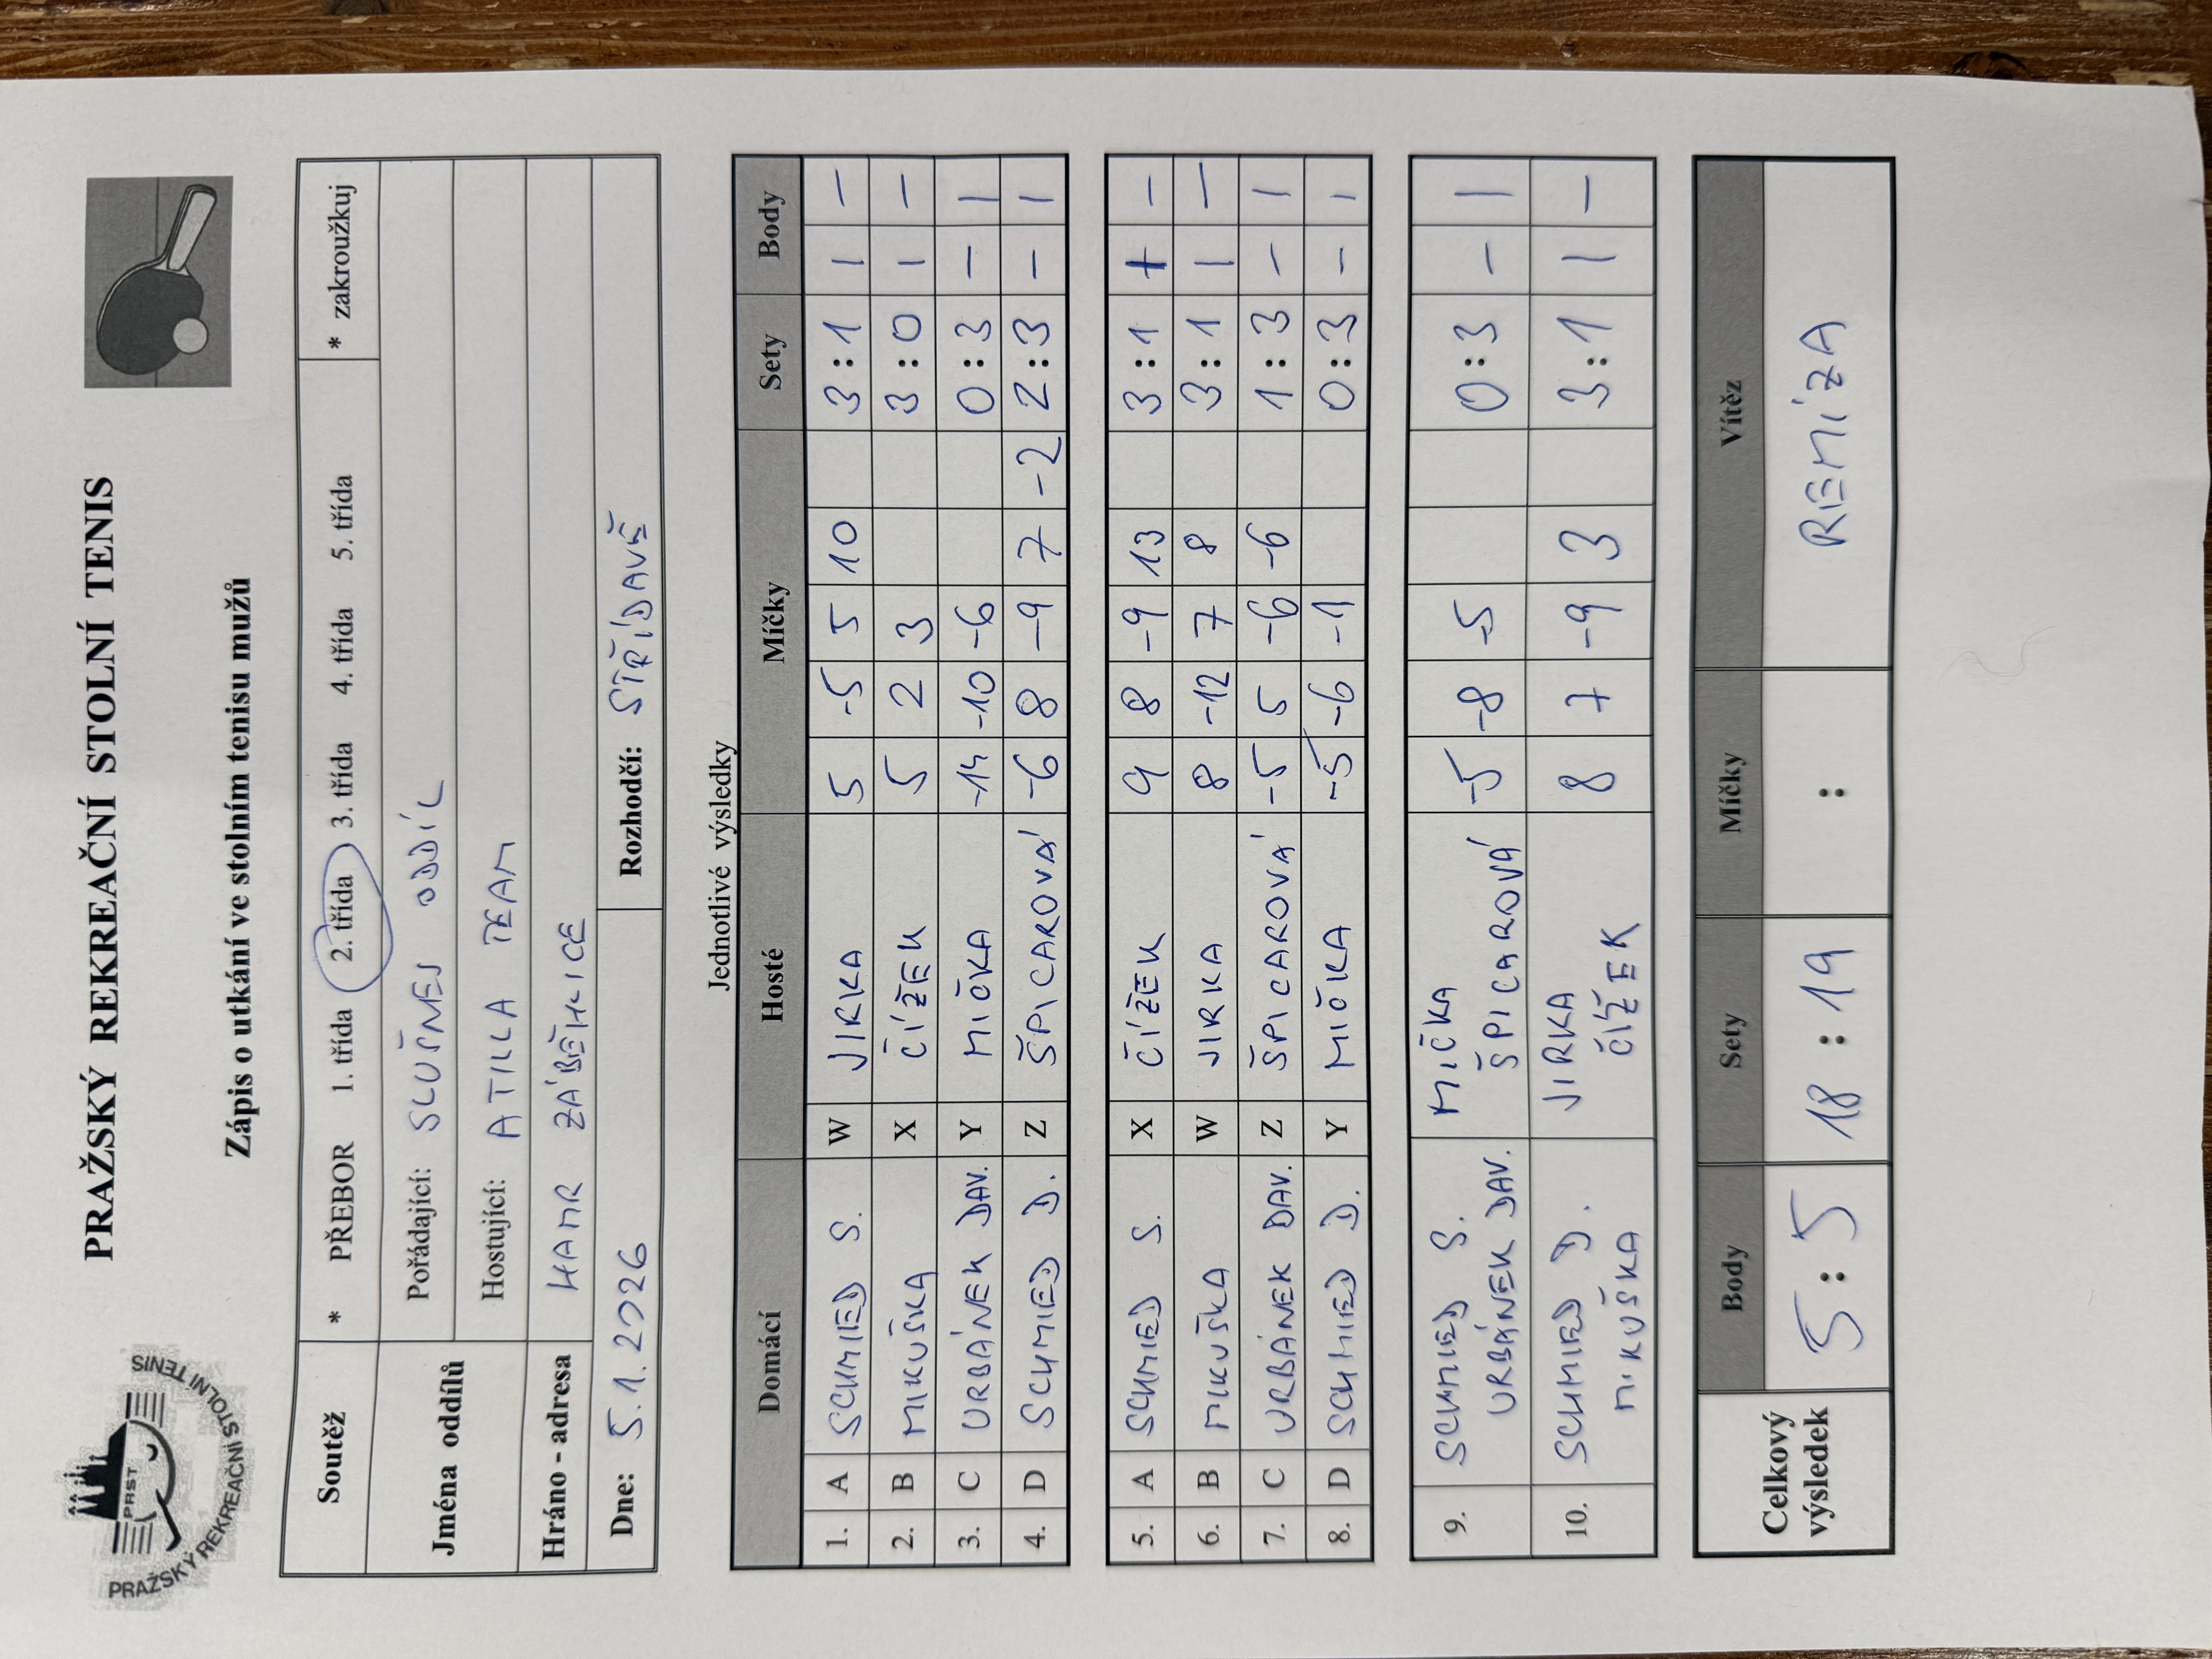 PRAŽSKÝ REKREAČNÍ STOLNÍ TENIS
PRST
PRAŽSKÝ REKREAČNÍ STOLNÍ TENIS
Zápis o utkání ve stolním tenisu mužů
Soutěž * PŘEBOR 1. třída 2. třída 3. třída 4. třída 5. třída * zakroužkuj
Jména oddílů Pořádající: SLUŠNEJ ODDÍL
Hostující: ATILLA TEAM
Hráno - adresa HAMR ZÁBĚHLICE
Dne: 5.1.2026 Rozhodčí: STŘÍDAVĚ
Jednotlivé výsledky
Domácí Hosté Míčky Sety Body
1. A SCHMIED S. W JIRKA 5 -5 5 10 3:1 1 -
2. B MIKUŠKA X ČÍŽEK 5 2 3 3:0 1 -
3. C URBÁNEK DAV. Y MIČKA -14 -10 -6 0:3 - 1
4. D SCHMIED D. Z ŠPICAROVÁ -6 8 -9 7 -2 2:3 - 1
5. A SCHMIED S. X ČÍŽEK 9 8 -9 13 3:1 1 -
6. B MIKUŠKA W JIRKA 8 -12 7 8 3:1 1 -
7. C URBÁNEK DAV. Z ŠPICAROVÁ -5 5 -6 -6 1:3 - 1
8. D SCHMIED D. Y MIČKA -5 -6 -1 0:3 - 1
9. SCHMIED S. MIČKA -5 -8 -5 0:3 - 1
URBÁNEK DAV. ŠPICAROVÁ
10. SCHMIED D. JIRKA 8 7 -9 3 3:1 1 -
MIKUŠKA ČÍŽEK
Celkový výsledek Body Sety Míčky Vítěz
5:5 18:19 : REMÍZA